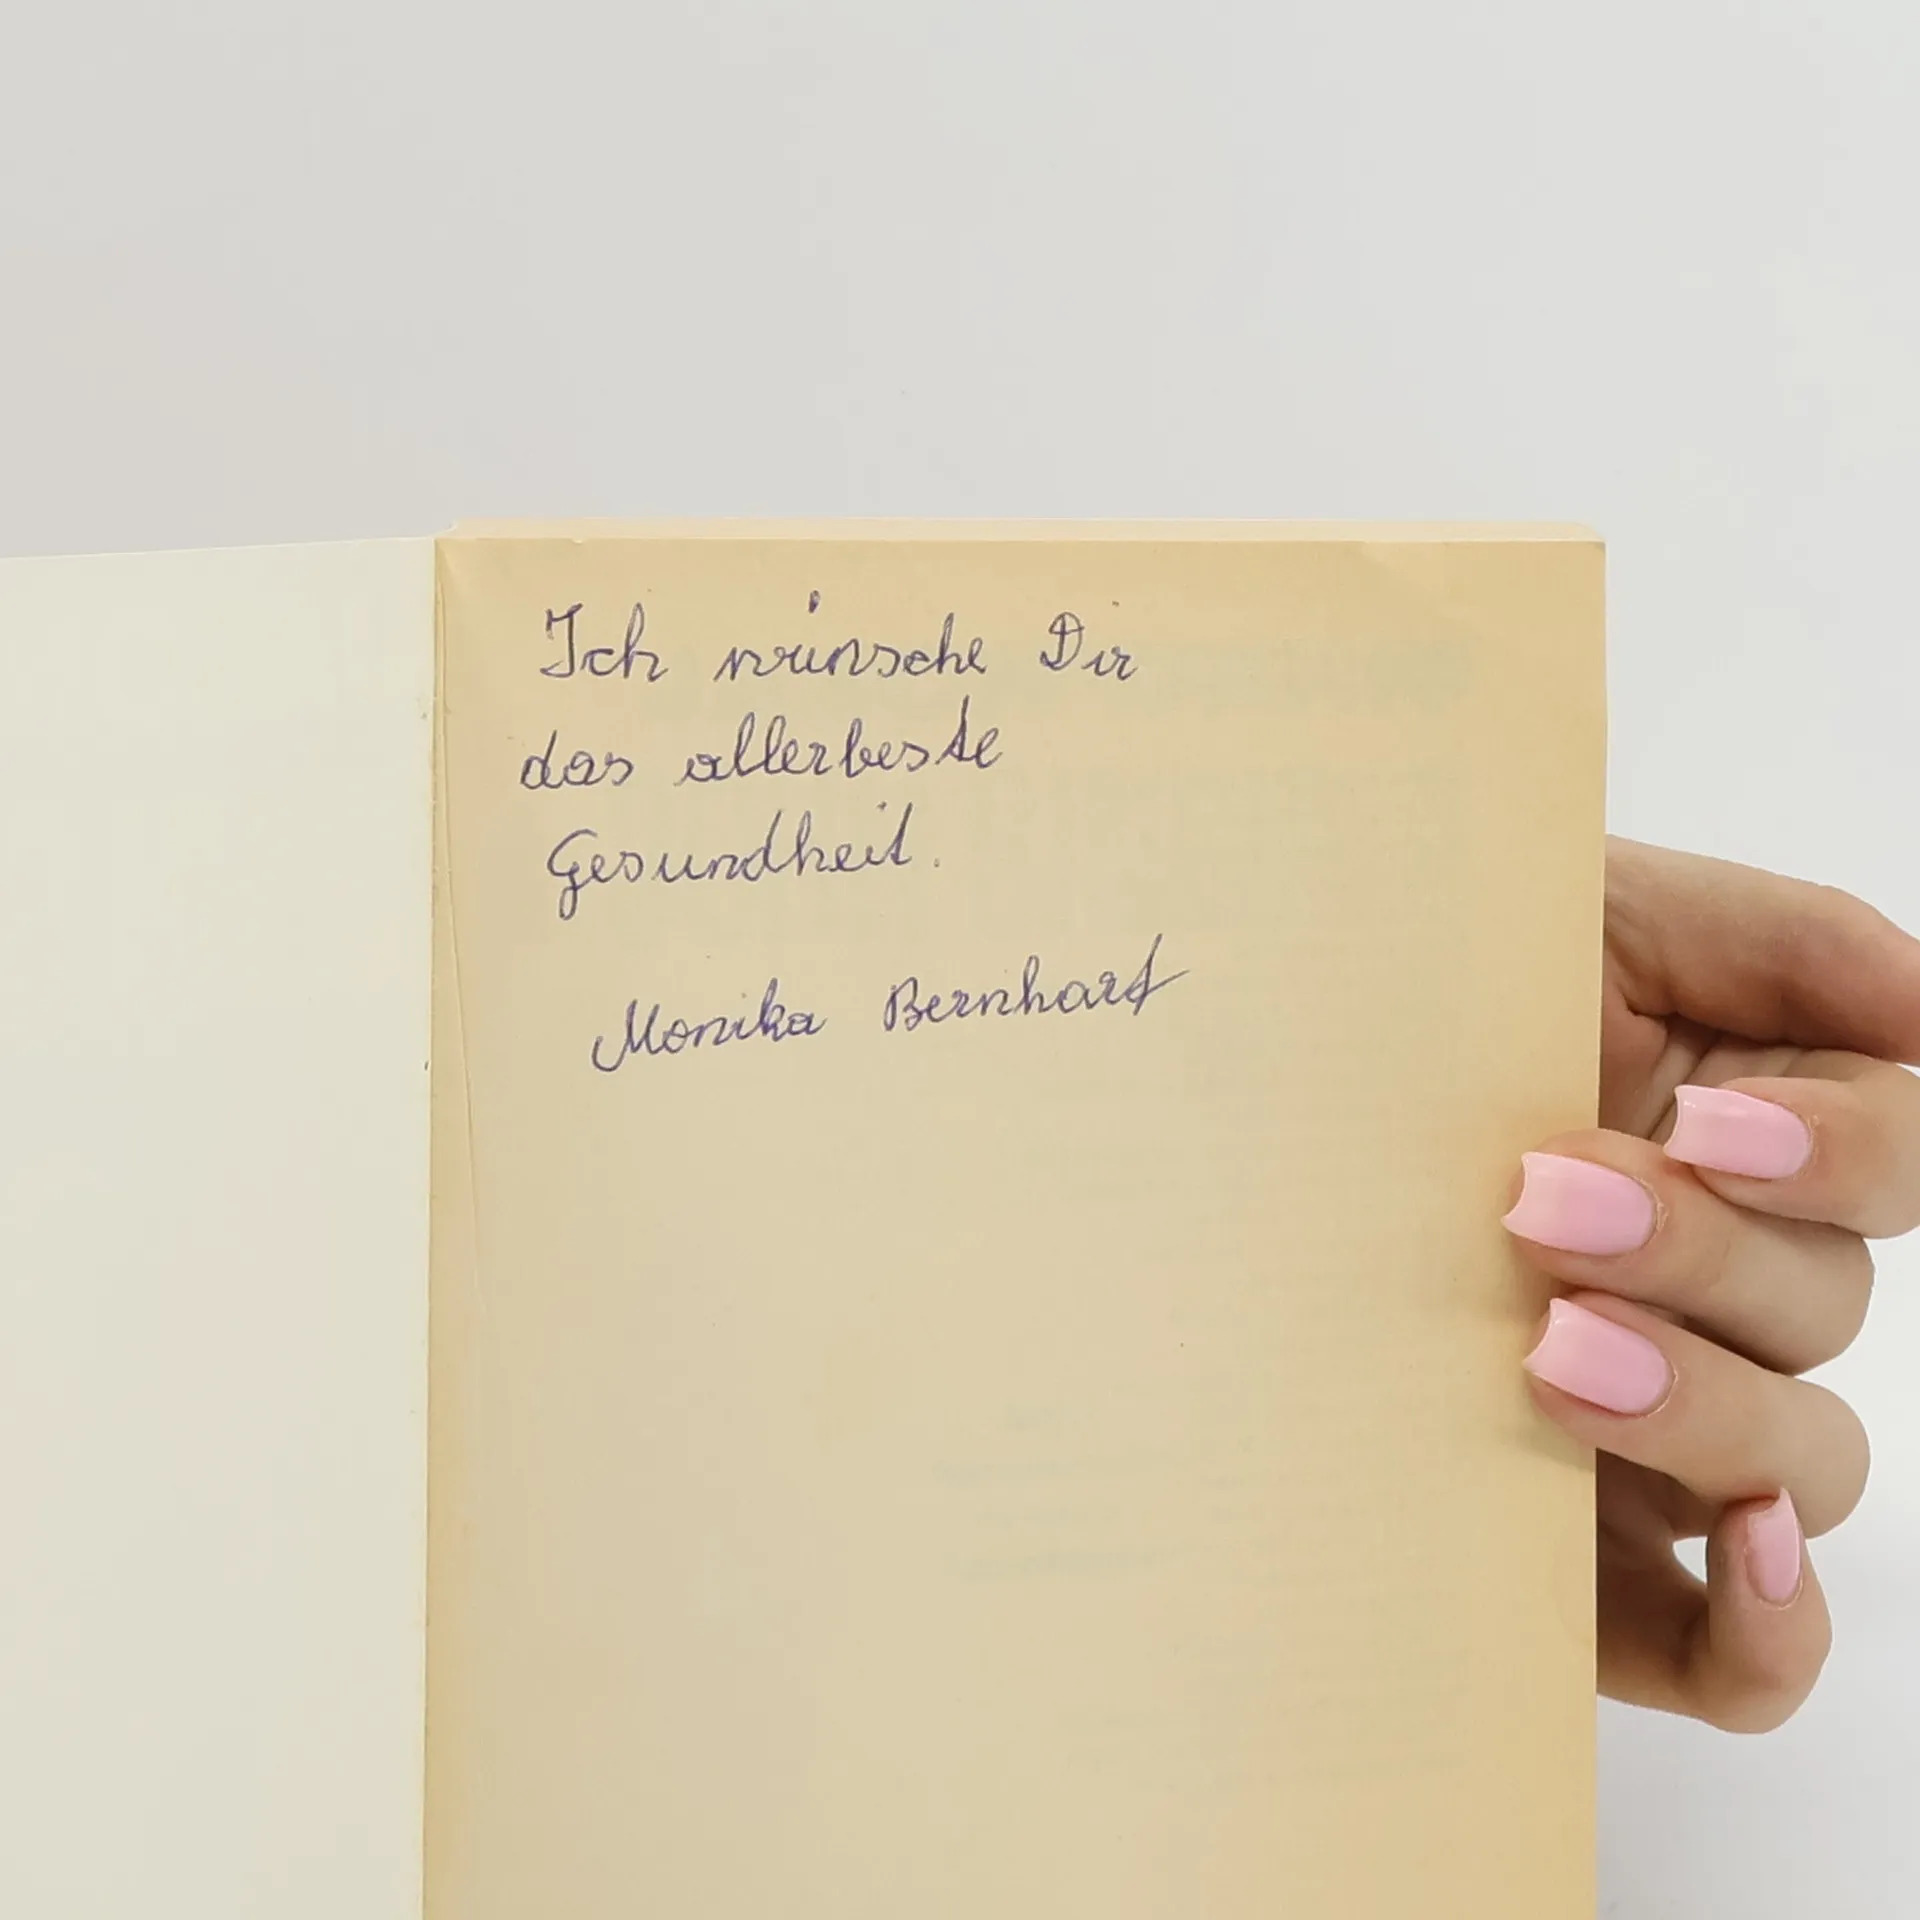 Ich wünsche Dir
das allerbeste
Gesundheit.
Monika Bernhart